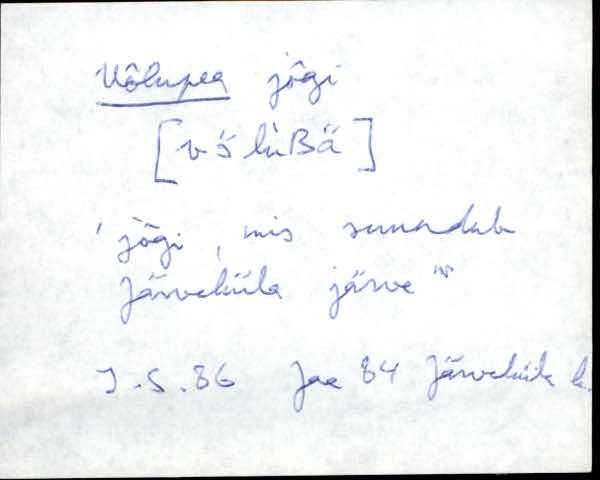 Võlupea jõgi
[võ̀lùBä]
'jõgi, mis suundub
Järveküla järve"
J.S.86 Jaa 84 Järveküla k.